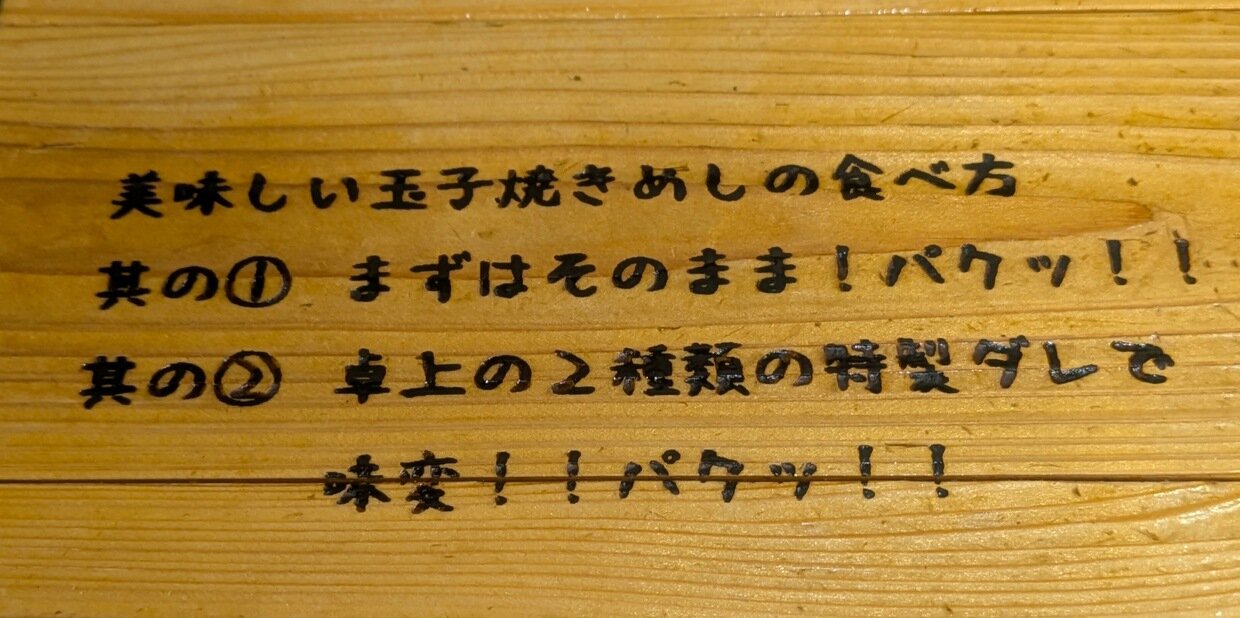 美味しい玉子焼きめしの食べ方
其の① まずはそのまま！パクッ！！
其の② 卓上の2種類の特製ダレで
味変！！パクッ！！